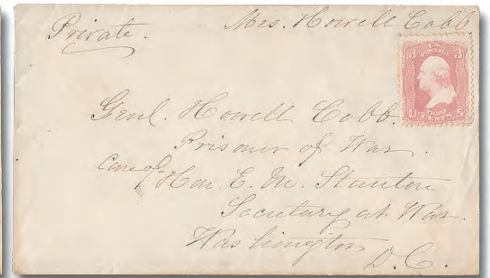 Private.
Mrs. Howell Cobb
Genl. Howell Cobb.
Prisoner of War.
Care of Hon. E. M. Stanton
Secretary at War.
Washington
D.C.
3 U.S. 3
POSTAGE
THREE
CENTS